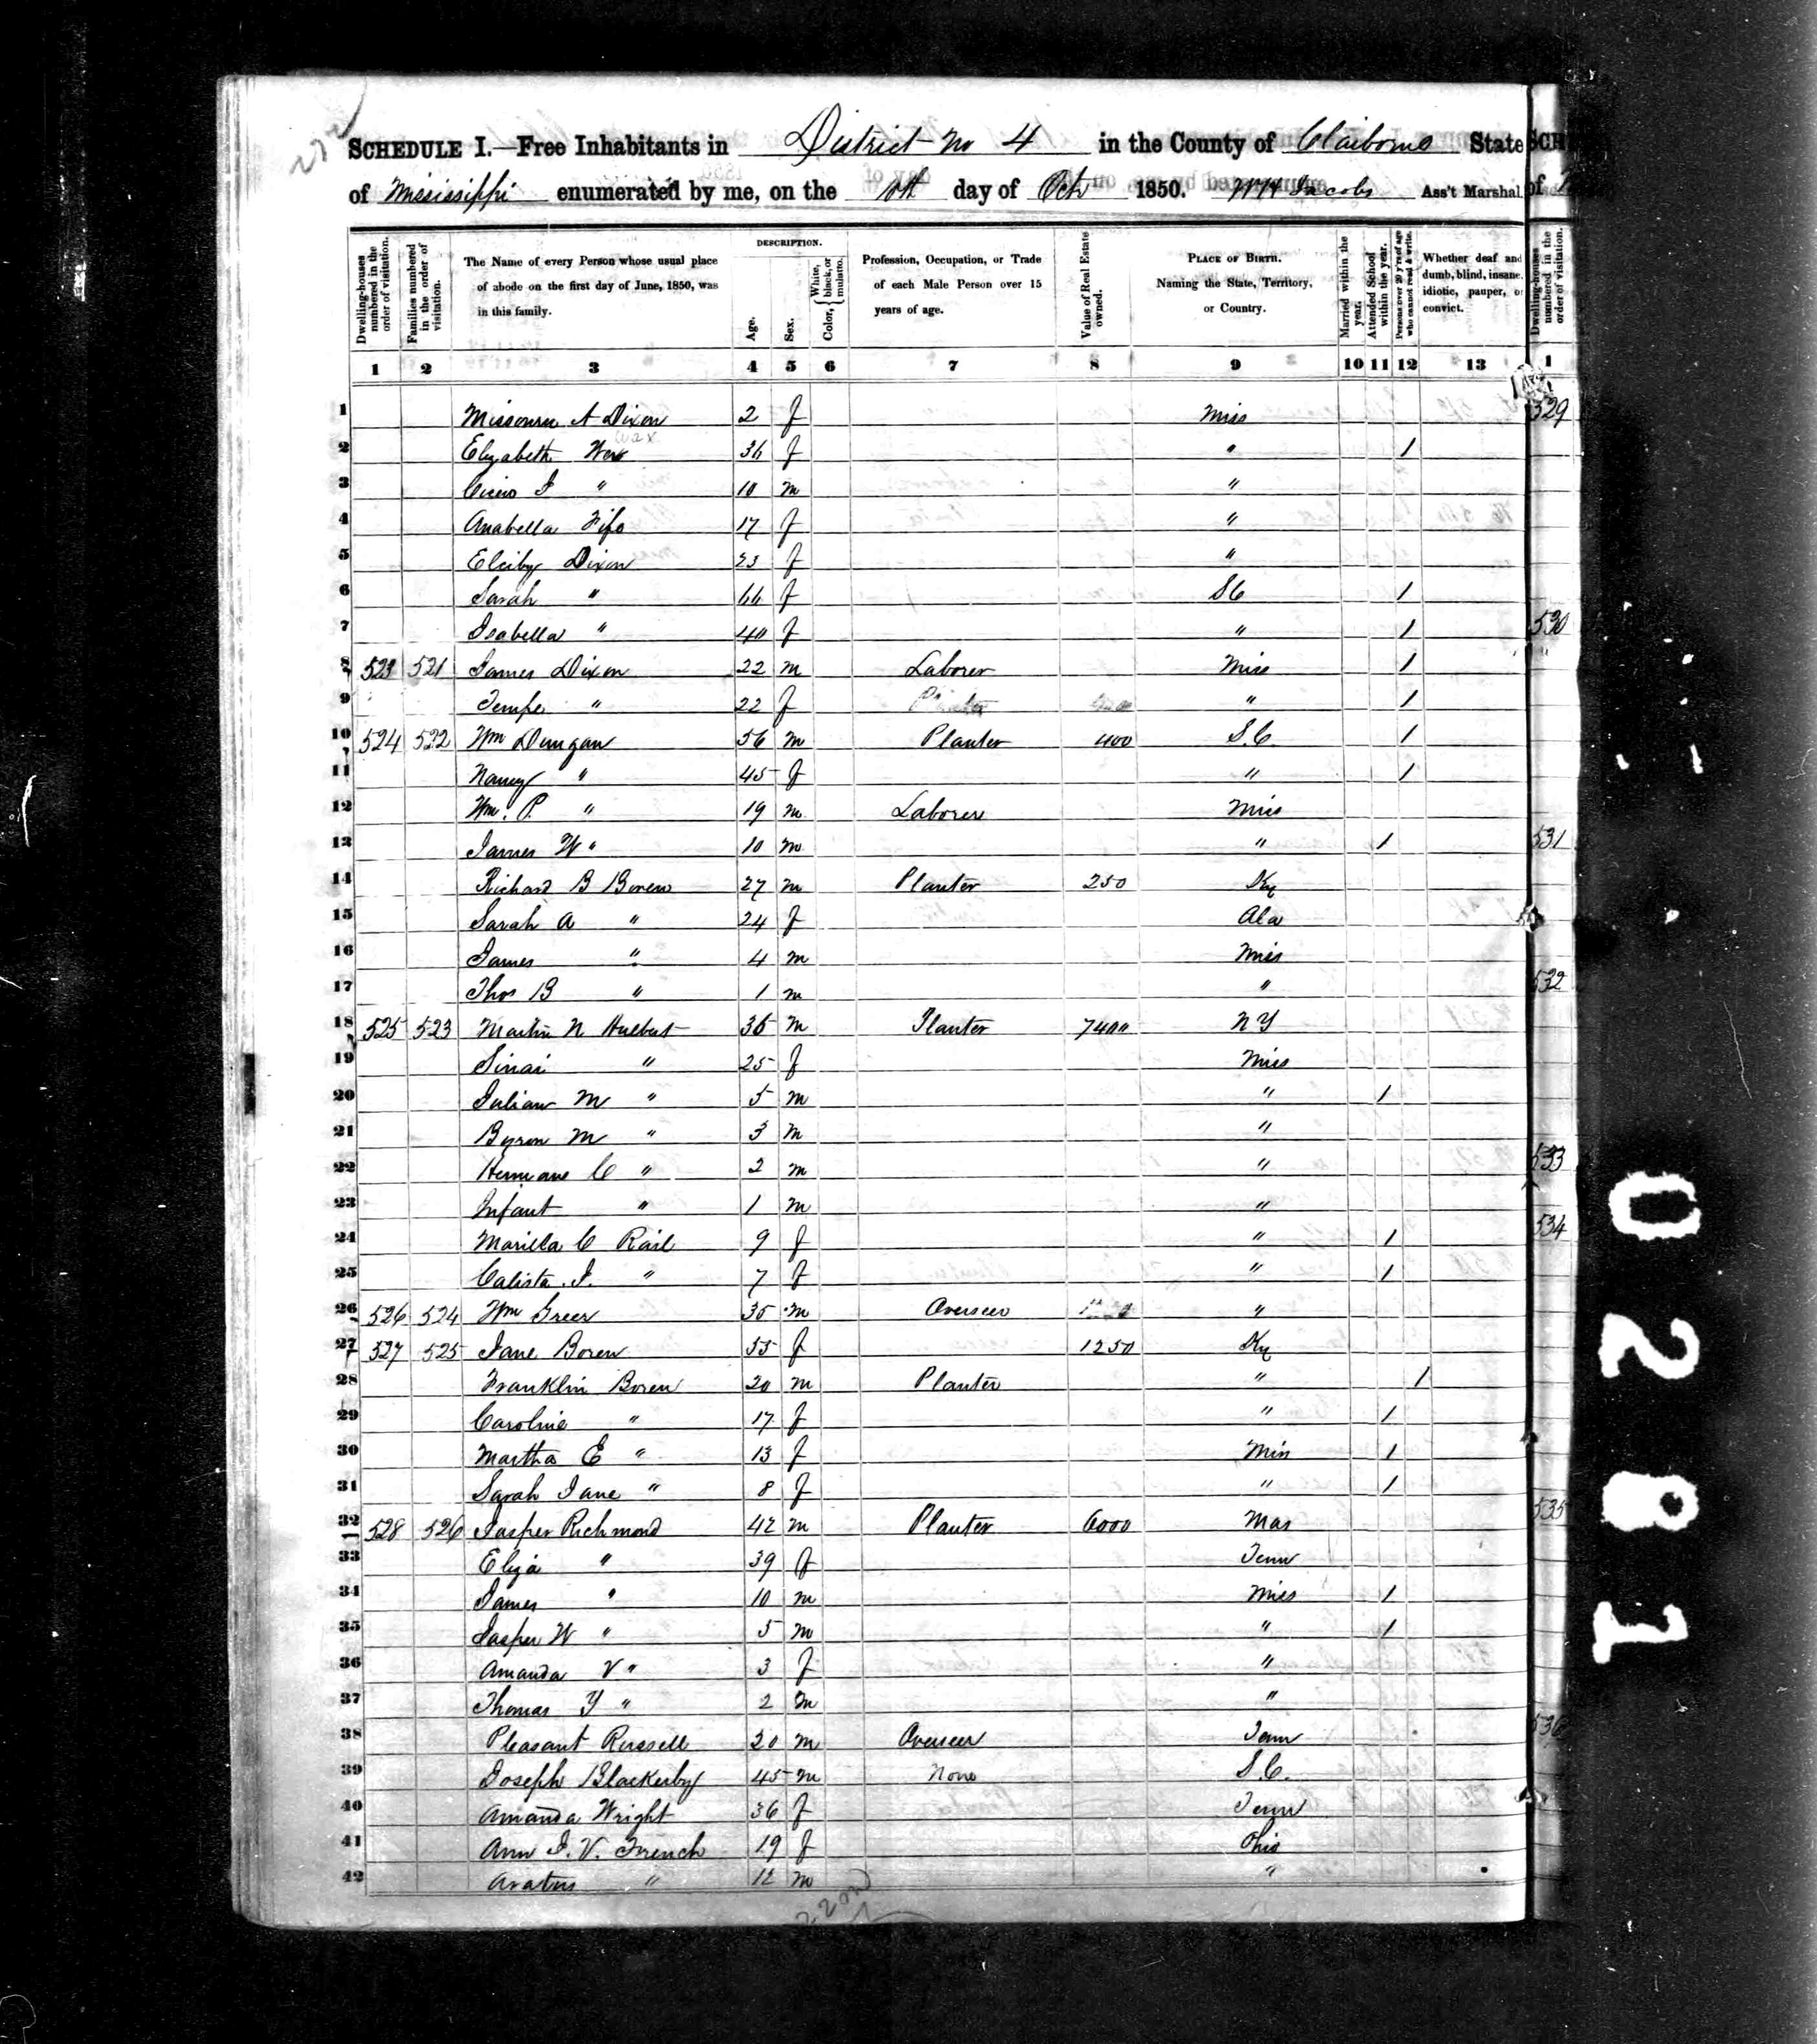 SCHEDULE I.—Free Inhabitants in District No 4 in the County of Claiborne State
of Mississippi enumerated by me, on the 10th day of Oct 1850. W H Jacobs Ass't Marshal
Dwelling-houses numbered in the order of visitation.
Families numbered in the order of visitation.
The Name of every Person whose usual place of abode on the first day of June, 1850, was in this family.
DESCRIPTION.
Age.
Sex.
Color, { White, black, or mulatto.
Profession, Occupation, or Trade of each Male Person over 15 years of age.
Value of Real Estate owned.
PLACE OF BIRTH. Naming the State, Territory, or Country.
Married within the year.
Attended School within the year.
Persons over 20 y'rs of age who cannot read & write.
Whether deaf and dumb, blind, insane, idiotic, pauper, or convict.
1 2 3 4 5 6 7 8 9 10 11 12 13
1 Missouri A Dixon 2 f Miss
2 Elizabeth Wax 36 f " 1
3 Cicero J " 10 m "
4 Anabella Fife 17 f "
5 Dixon 23 f "
6 Sarah " 66 f S C 1
7 Isabella " 40 f " 1
8 523 521 James Dixon 22 m Laborer Miss 1
9 Tempe " 22 f " 1
10 524 522 Wm Dungan 56 m Planter 400 S.C. 1
11 Nancy " 45 f " 1
12 Wm. P. " 19 m Laborer Miss
13 James W " 10 m " 1
14 Richard B Boren 27 m Planter 250 Ky
15 Sarah A " 24 f Ala
16 James " 4 m Miss
17 Thos B " 1 m "
18 525 523 Martin N Hulbert 36 m Planter 7400 N Y
19 Sinai " 25 f Miss
20 Julian M " 5 m " 1
21 Byron M " 3 m "
22 Hermane C " 2 m "
23 Infant " 1 m "
24 Marilla C Rail 9 f " 1
25 Calista J. " 7 f " 1
26 526 524 Wm Greer 35 m Overseer "
27 527 525 Jane Boren 55 f 1250 Ky
28 Franklin Boren 20 m Planter " 1
29 Caroline " 17 f " 1
30 Martha E " 13 f Miss 1
31 Sarah Jane " 8 f " 1
32 528 526 Jasper Richmond 42 m Planter 6000 Mas
33 Eliza " 39 f Tenn
34 James " 10 m Miss 1
35 Jasper W " 5 m " 1
36 Amanda V " 3 f "
37 Thomas Y " 2 m "
38 Pleasant Russell 20 m Overseer Tenn
39 Joseph Blackerby 45 m None S.C.
40 Amanda Wright 36 f Tenn
41 Ann J. V. French 19 f Ohio
42 Aratus " 12 m "
SCH
of
Dwelling-houses numbered in the order of visitation.
1
529
530
531
532
533
534
535
536
0281